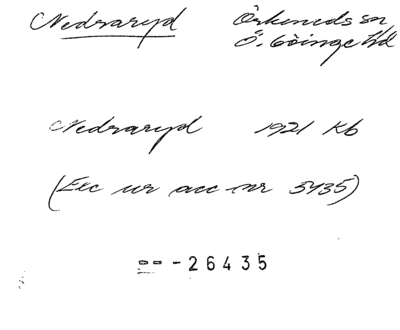 Nedraryd Örkeneds sn
Ö. Göinge Hd
Nedraryd 1921 Kb
(Exc ur acc nr 5435)
-- -26435